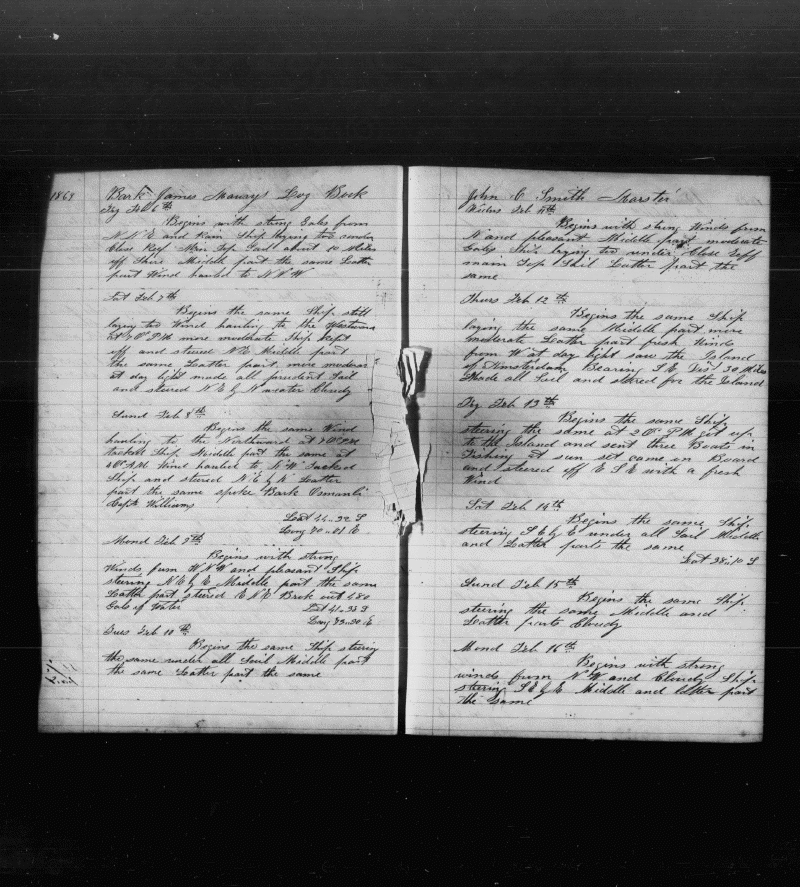 1869
Bark James Maurys Log Book
Fry Feb 6th
Begins with strong Gales from
N.N.E and Rain Ship laying too under
Close Reef Main Top Sail about 10 Miles
off Shire Middle part the same Latter
part Wind hauled to N.N.W
Sat Feb 7th
Begins the same Ship still
laying too Wind hauling to the Westward
at O'P.M more moderate Ship kept
off and steered N.E Middle part
the same Latter part more moderate
at day light made all prudent Sail
and steered N.E by N weater Cloudy
Sund Feb 8th
Begins the same Wind
hauling to the Northward at O P.M
tacked Ship Middle part the same at
4 O A.M Wind hauled to N.W Tacked
Ship and steered N.E by N Latter
part the same spoke Bark Osmanli
Capt Williams
Lat 44-32 S
Long 70-01 E
Mond Feb 9th
Begins with strong
Winds from W.N.W and pleasant Ship
steering N.E by E Middle part the same
Latter part steered E N E Broke out 680
Gals of Water
Lat 41-33 S
Long 73-30 E
Tues Feb 10th
Begins the same Ship steering
the same under all Sail Middle part
the same Latter part the same
John C Smith Marster
Wednes Feb 11th
Begins with strong Winds from
N and pleasant Middle part moderate
Gales Ship laying too under Close Reff
main Top Sail Latter part the
same
Thurs Feb 12th
Begins the same Ship
laying the same Middle part more
moderate Latter part fresh Winds
from W at day light saw the Island
of Amsterdam Bearing S.E Dist 30 Miles
Made all Sail and stered for the Island
Fry Feb 13th
Begins the same Ship
steering the same at 2 O P.M got up
to the Island and sent three Boats in
Fishing at sun set came on Board
and steered off E S E with a fresh
Wind
Sat Feb 14th
Begins the same Ship
steering S.E by E under all Sail Middle
and Latter parts the same
Lat 38-10 S
Sund Feb 15th
Begins the same Ship
steering the same Middle and
Latter parts Cloudy
Mond Feb 16th
Begins with strong
winds from N.W and Cloudy Ship
steering S.E by E Middle and latter part
the same